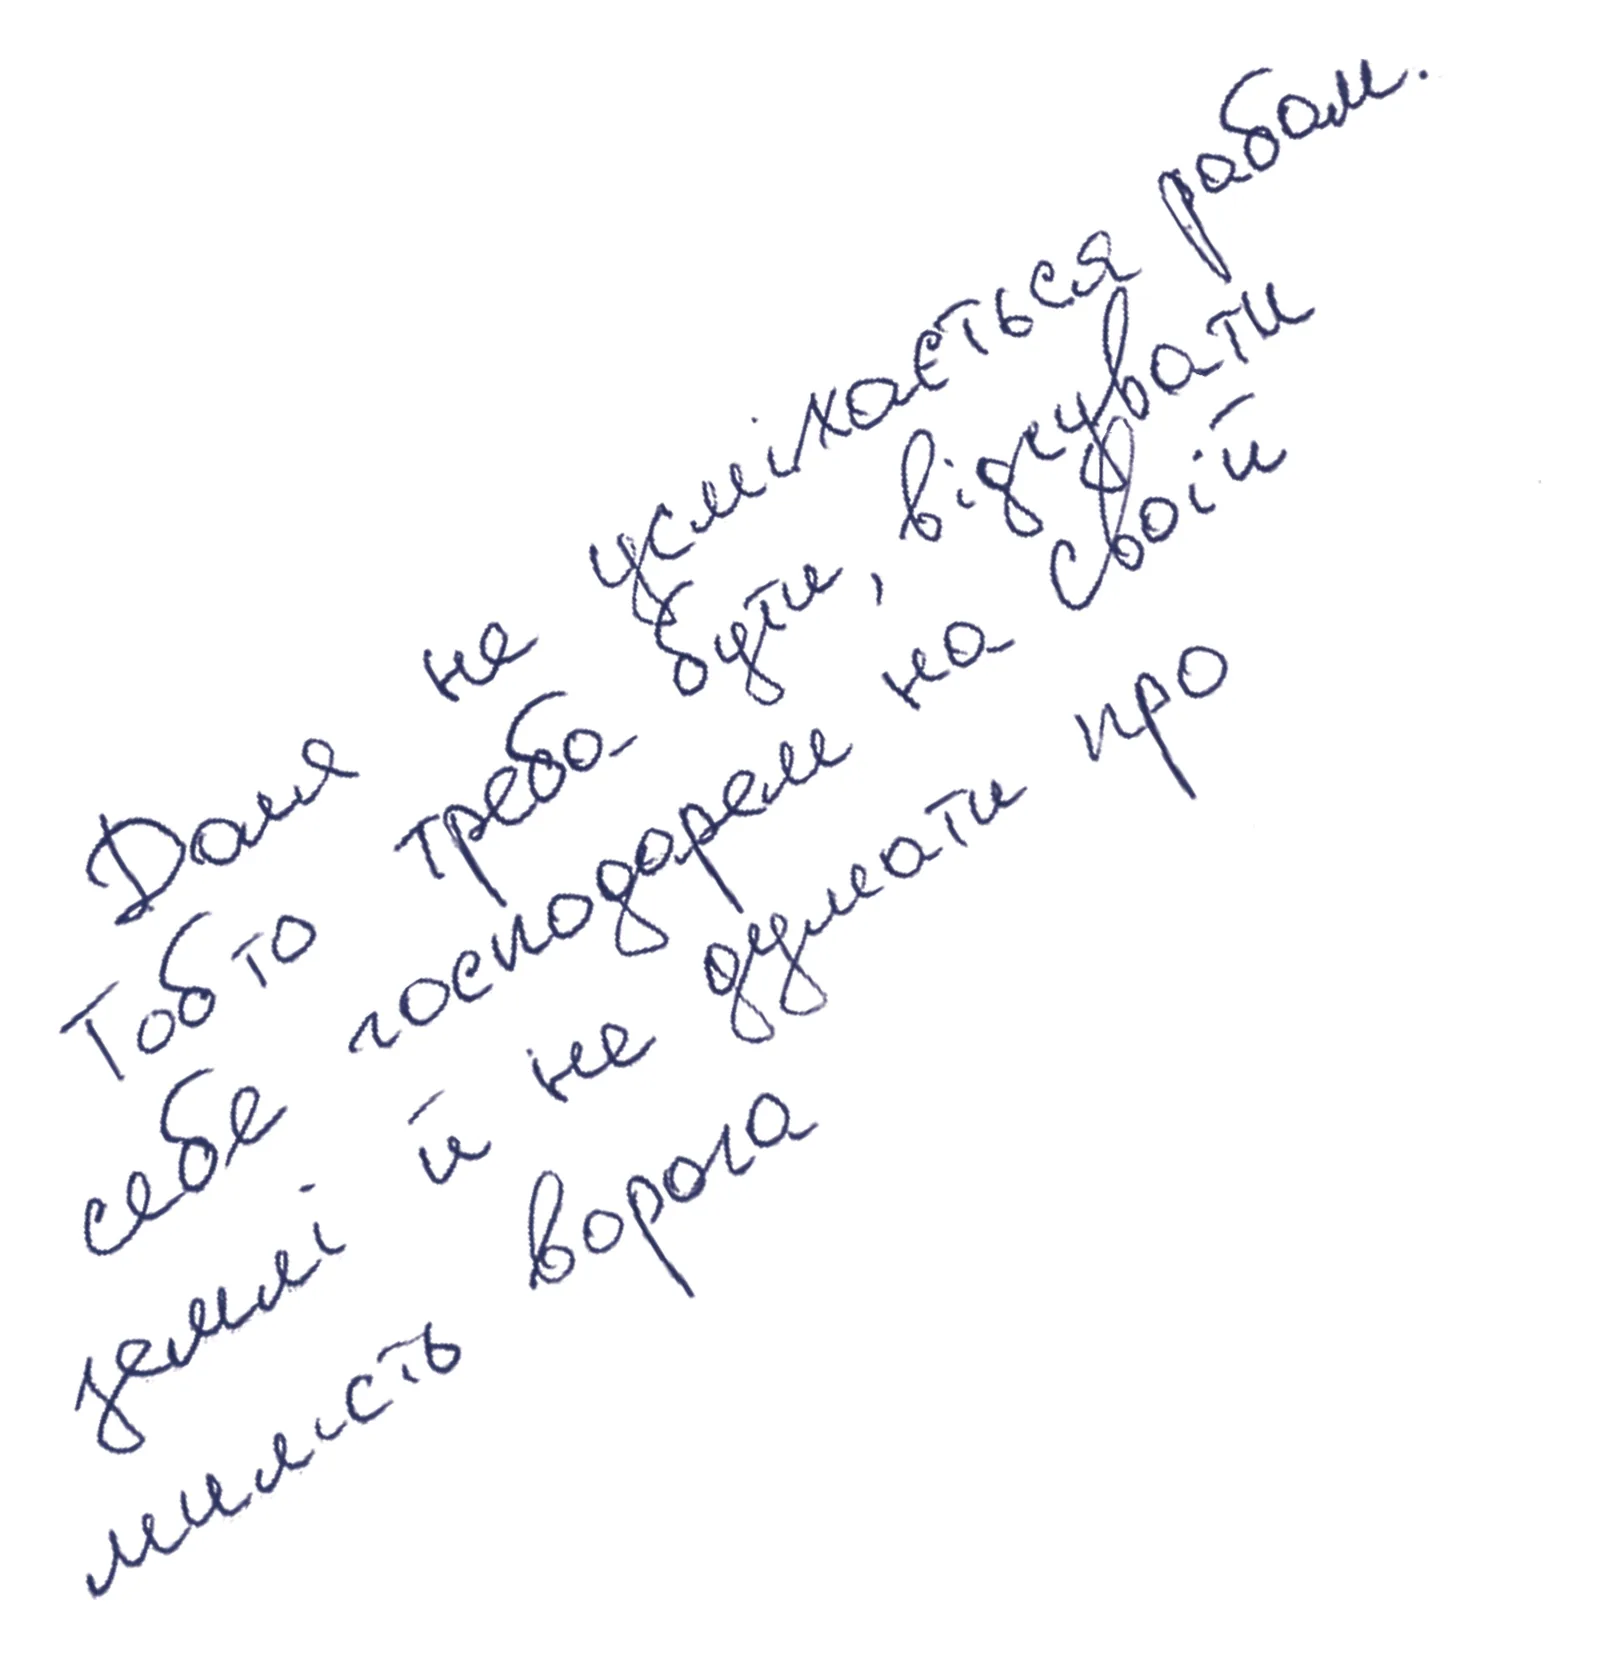 Доля не усміхається рабам.
Тобто треба бути, відчувати
себе господарем на своїй
землі й не думати про
милість ворога